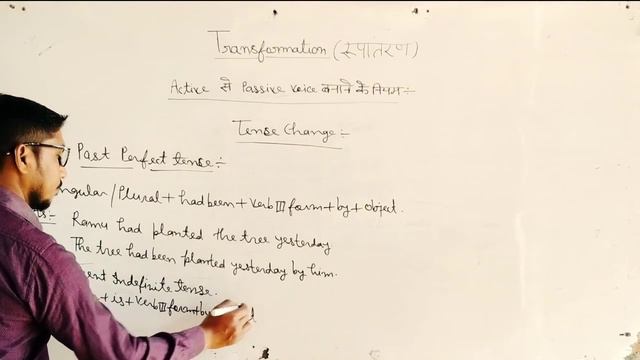 Transformation (रूपांतरण)
Active से Passive voice बनाने के नियम :-
Tense Change :-
Past Perfect tense :-
/ Plural + had been + verb III form + by + object.
Ramu had planted the tree yesterday
The tree had been planted yesterday by him.
Indefinite tense.
+ is + verb III form + by